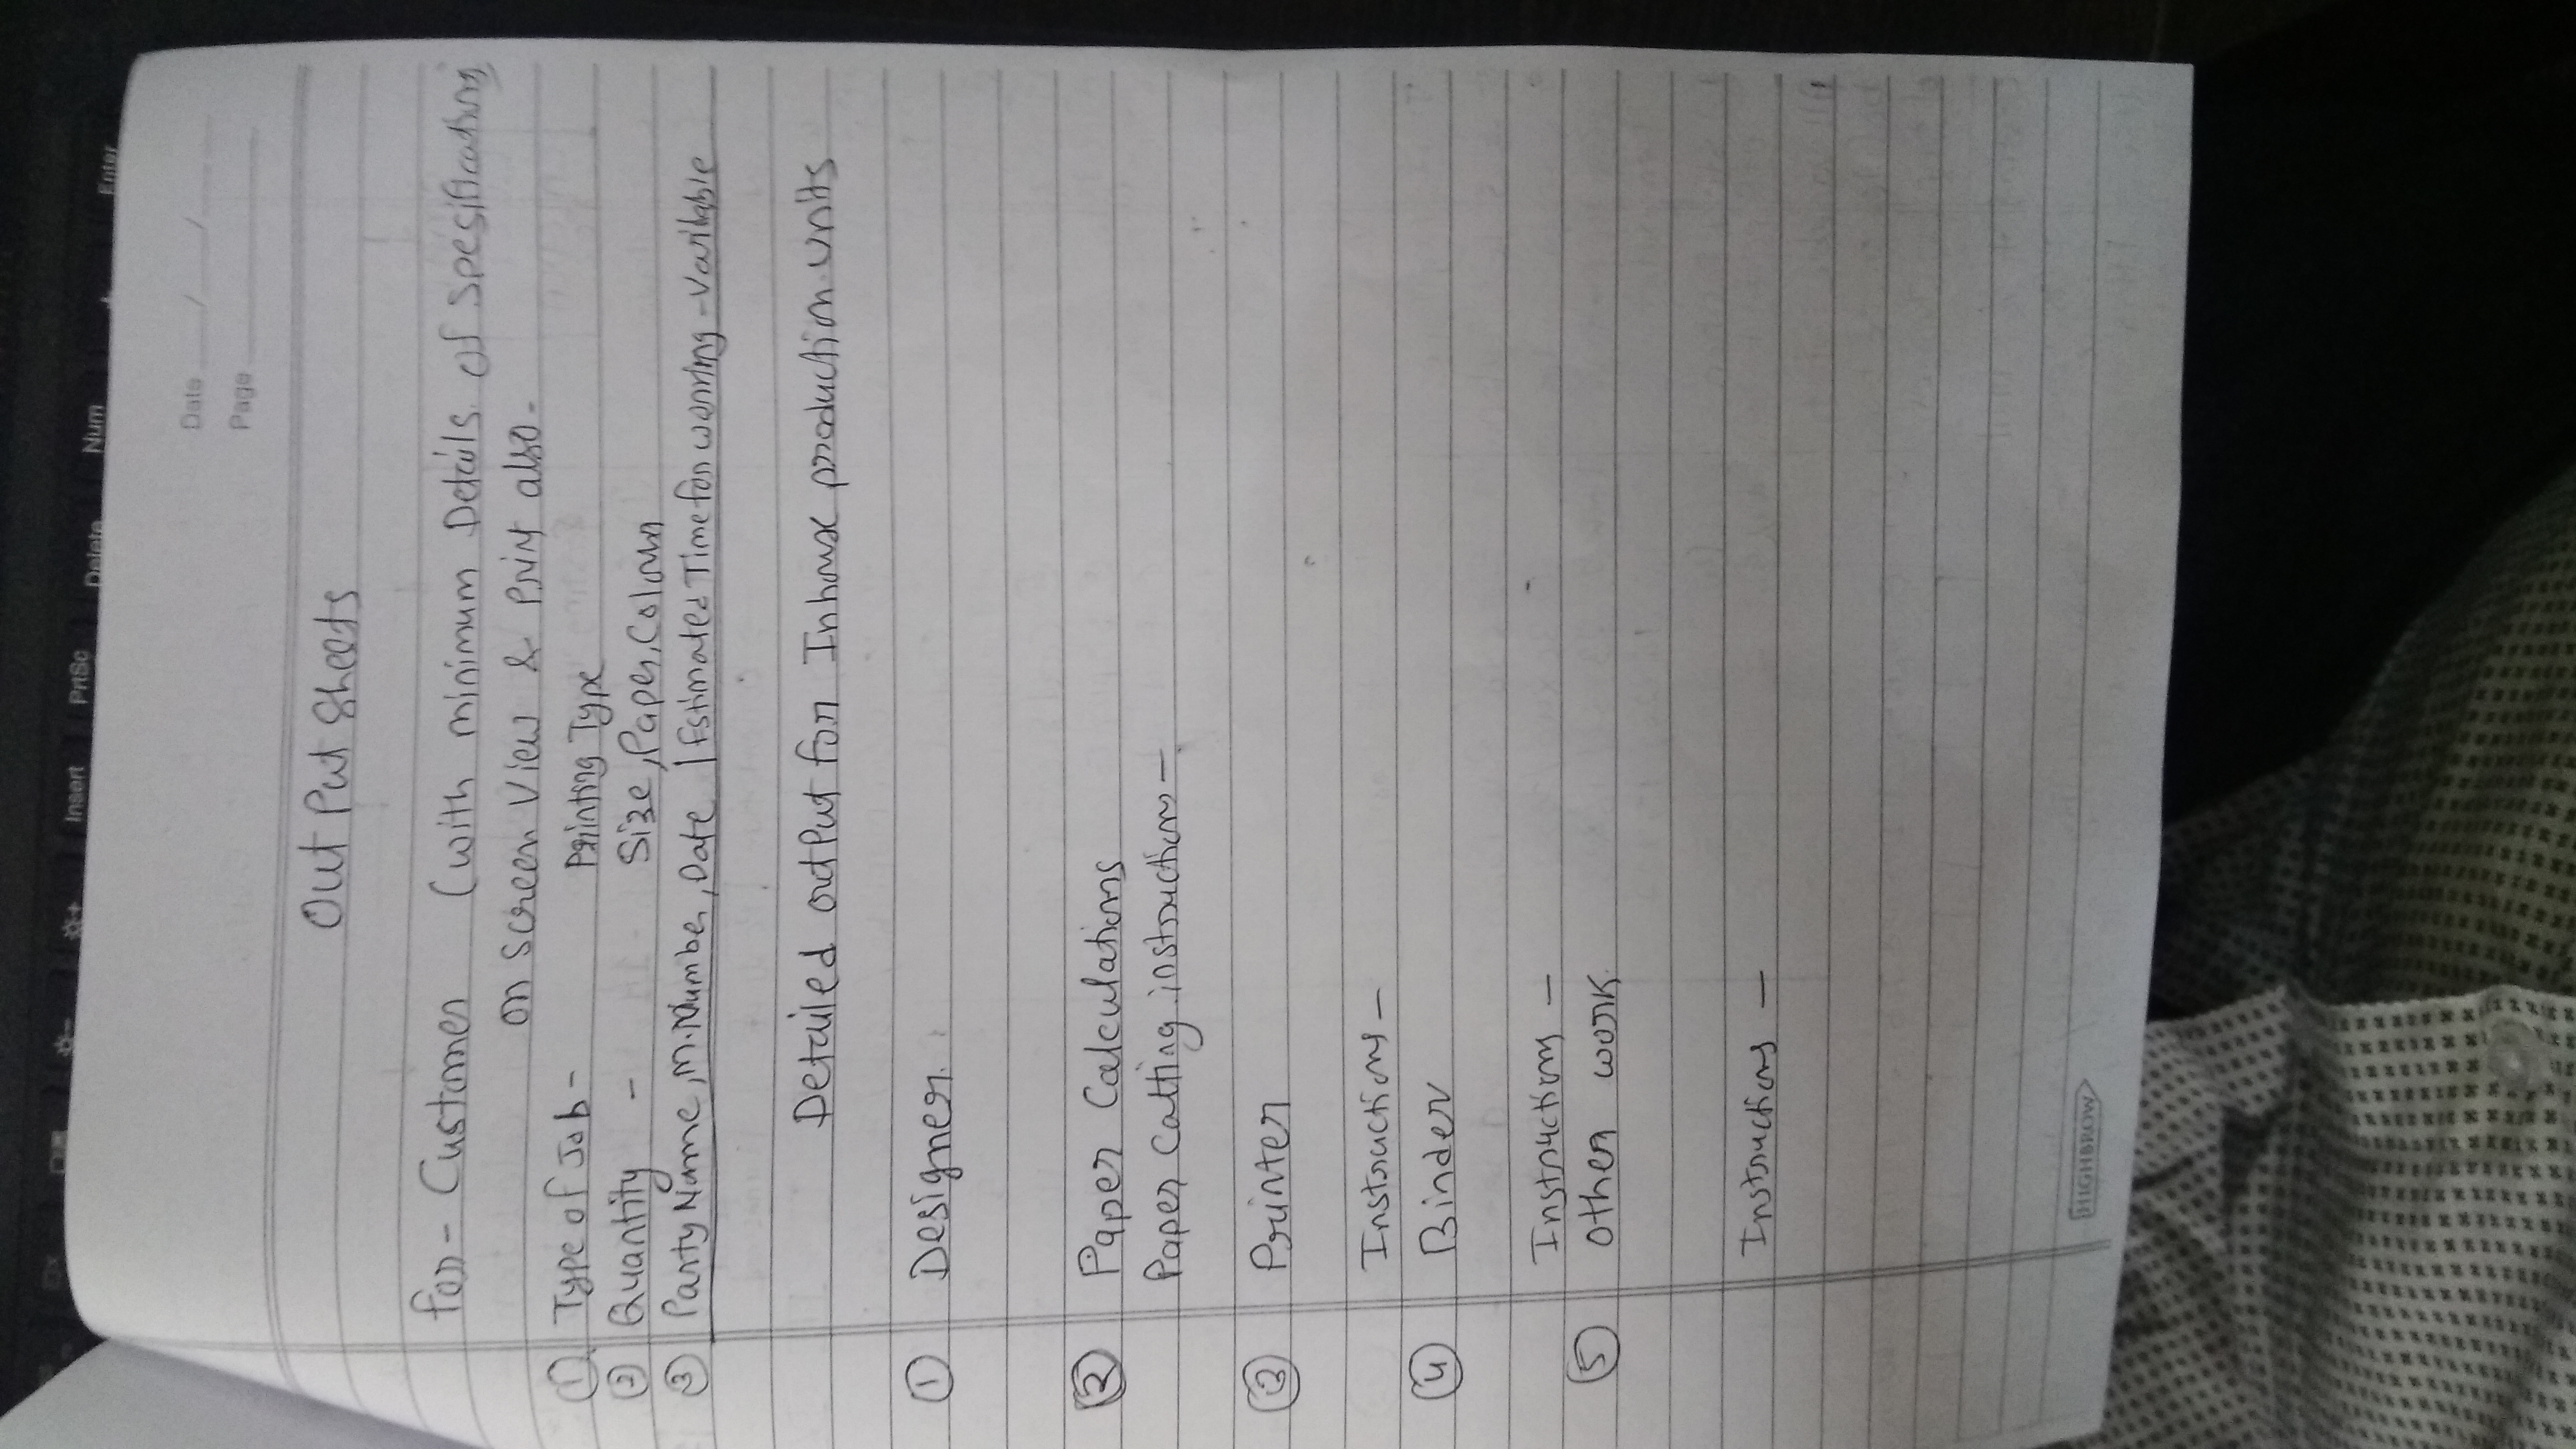 Date / /
Page
Out Put Sheets
for - Customer (with minimum Details of Spesifications
on screen View & Print also -
① Type of Job - Printing Type
② Quantity - Size, Paper, Colour
③ Party Name, M. Number, Date | Estimated Time for working - Varibable
Detailed output for Inhouse production units
① Designer.
② Paper Calculations
Paper Catting instructions -
③ Printer
Instructions -
④ Binder
Instructions -
⑤ Other work.
Instructions -
HIGHBROW
Enter
Num
Delete
PrtSc
Insert